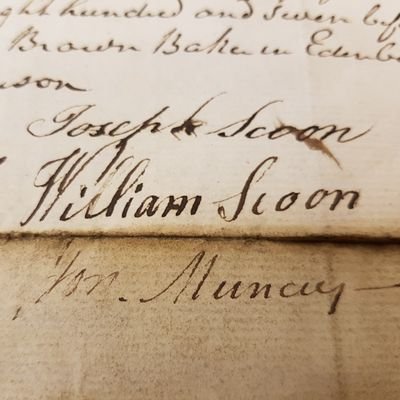 ght hundred and seven bef
Brown Baker in Edinb
son
Joseph Scoon
William Scoon
Jon. Muncey